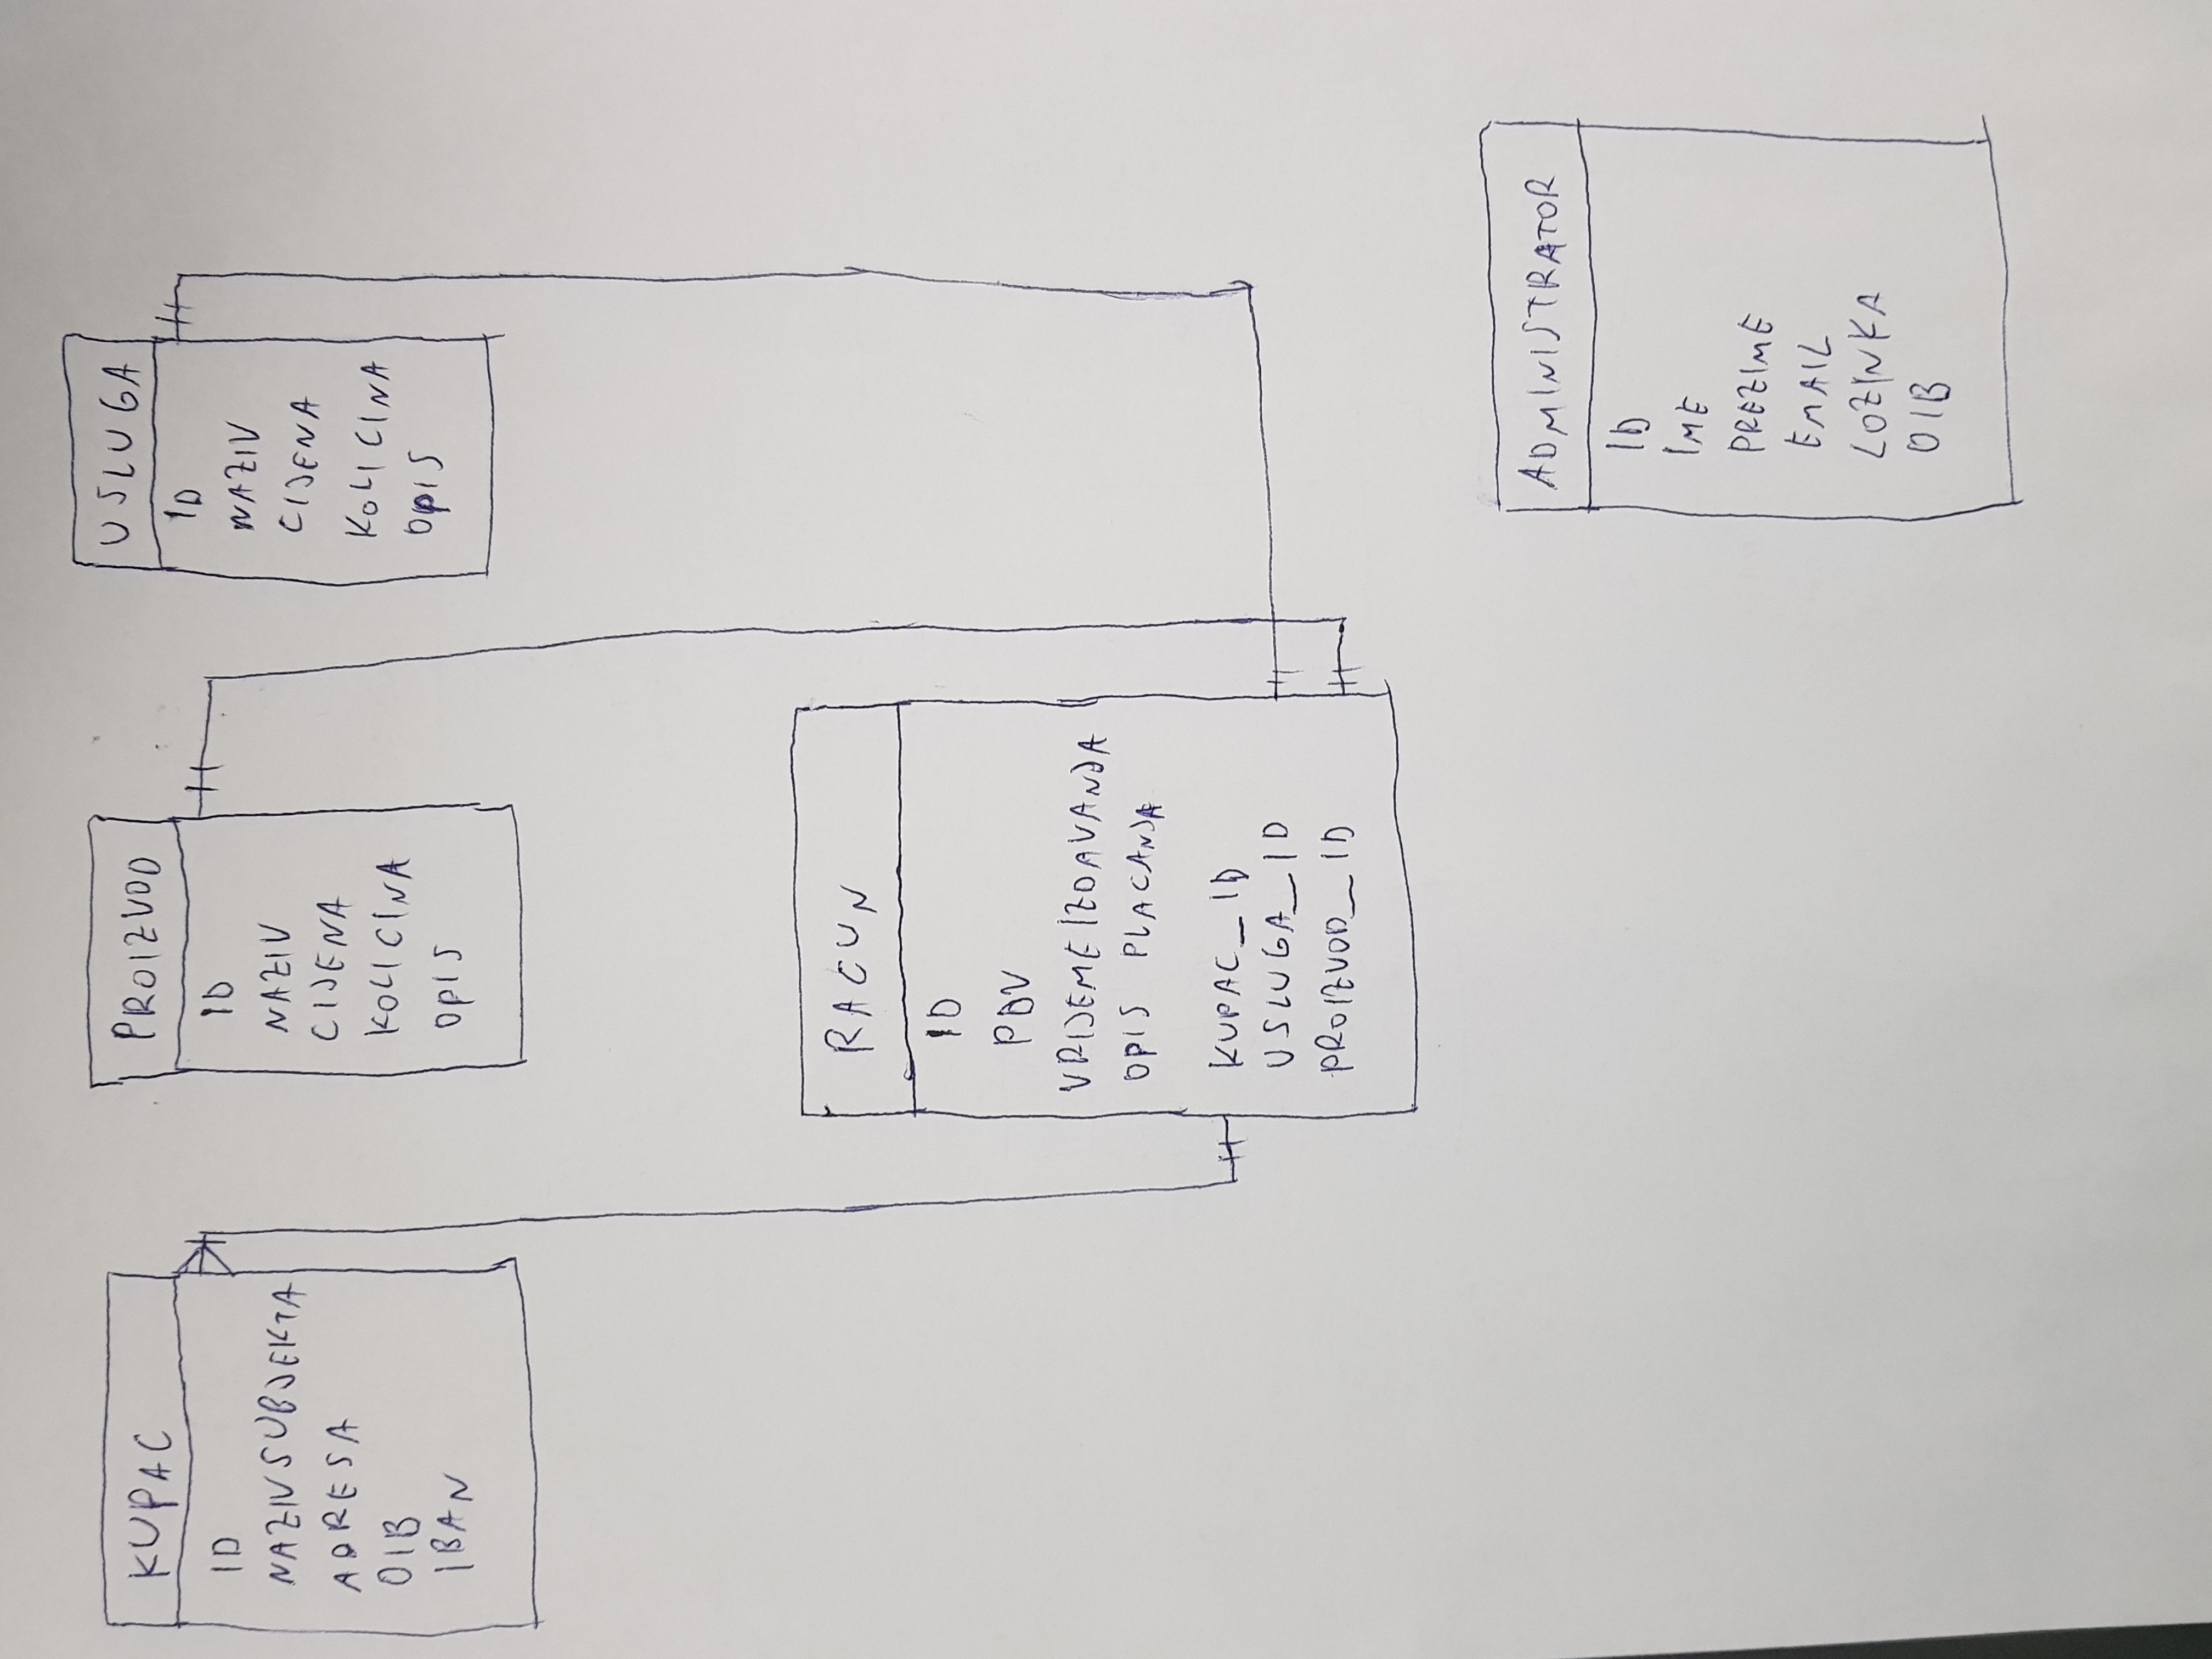 KUPAC
ID
NAZIVSUBJEKTA
ADRESA
OIB
IBAN
PROIZVOD
ID
NAZIV
CIJENA
KOLICINA
OPIS
USLUGA
ID
NAZIV
CIJENA
KOLICINA
OPIS
RACUN
ID
PDV
VRIJEMEIZDAVANJA
OPIS PLACANJA
KUPAC_ID
USLUGA_ID
PROIZVOD_ID
ADMINISTRATOR
ID
IME
PREZIME
EMAIL
LOZINKA
OIB